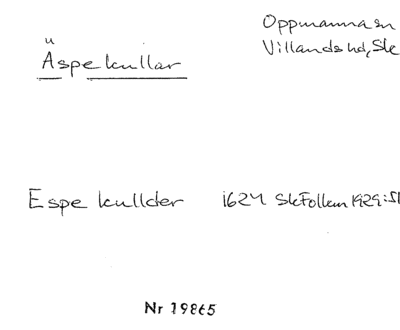 Oppmanna sn
Villands hd, Sk
Äspekullar
Espe kullder 1624 SkFollem 1929:51
Nr 19865